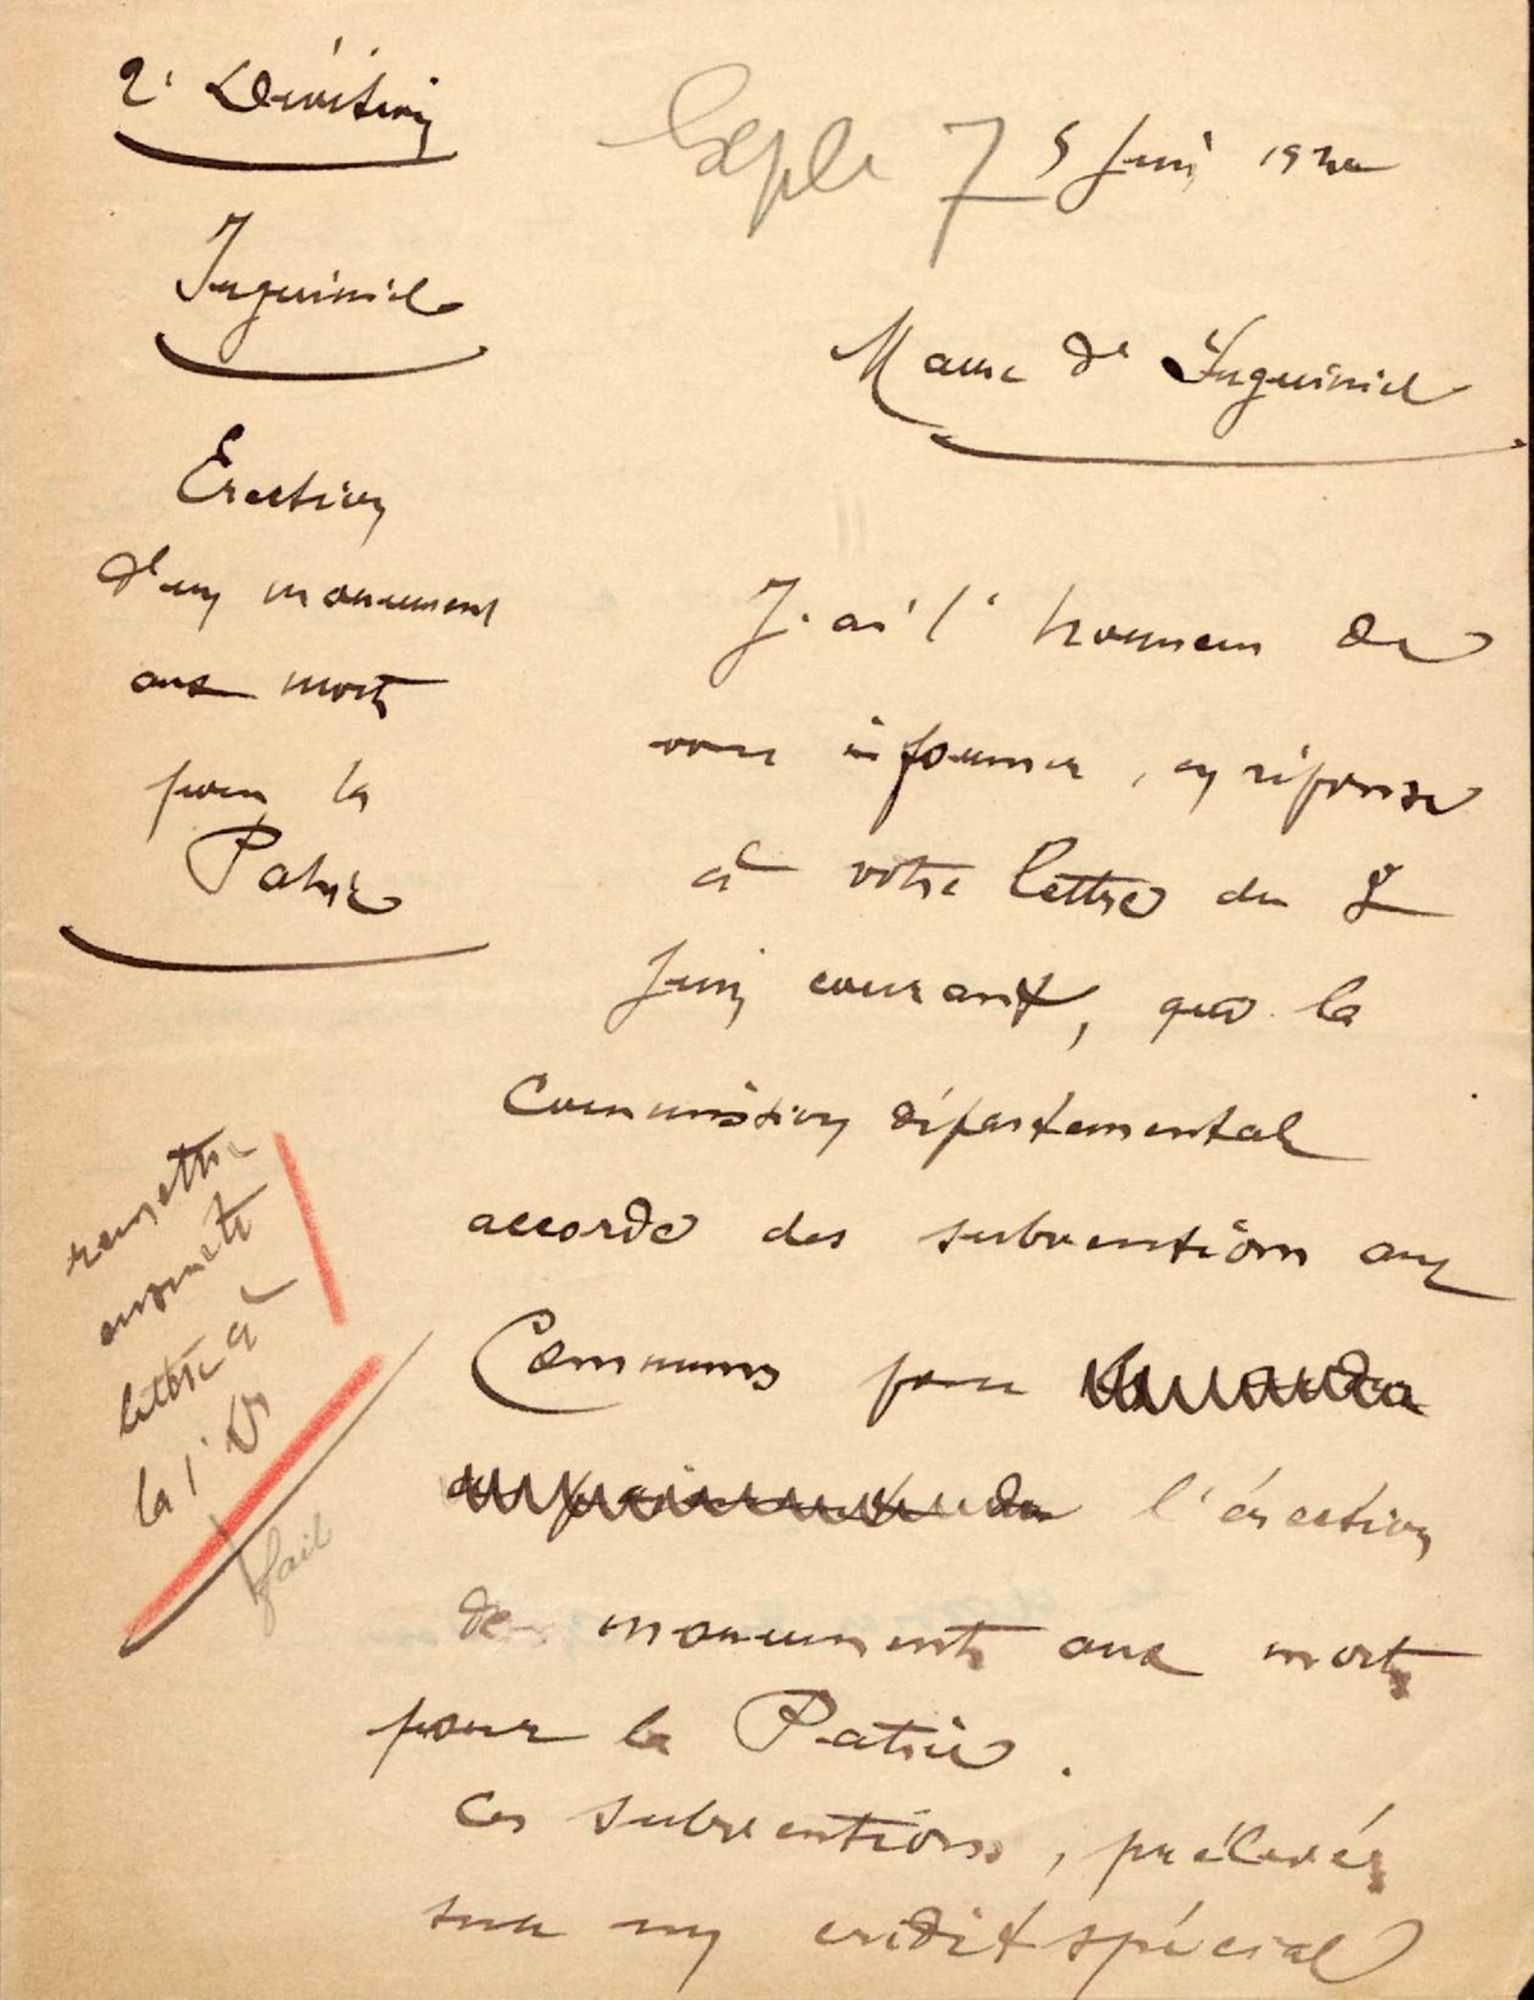 2e Division
Inguiniel
Erection
d'un monument
aux morts
pour la
Patrie
remettre
ensuite
lettre à
la 1e Don
fait
Exple 7 5 Juin 1920
Maire d' Inguiniel
J'ai l'honneur de
vous informer, en réponse
à votre lettre du 2
Juin courant, que la
Commission départementale
accorde des subventions aux
Communes pour
l'érection
de monuments aux morts
pour la Patrie.
Ces subventions, prélevées
sur un crédit spécial